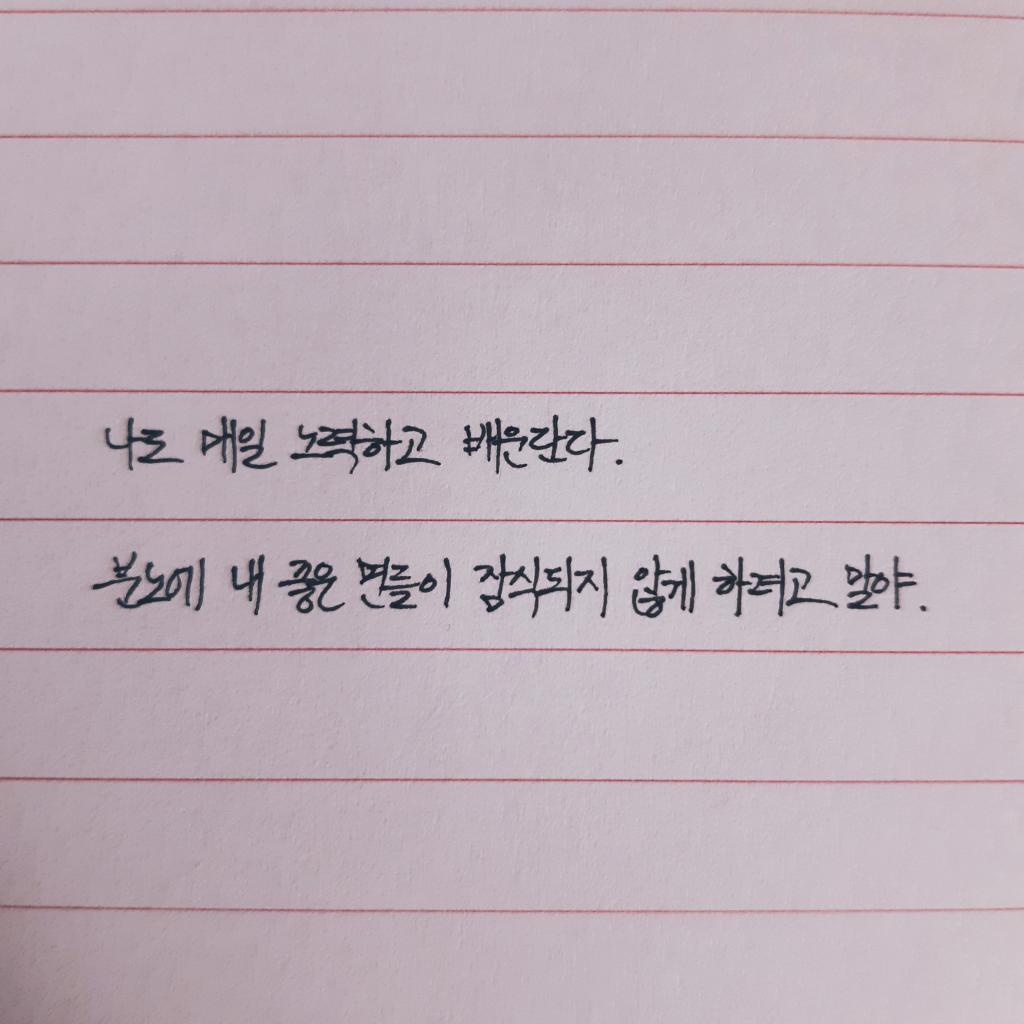 나도 매일 노력하고 배운단다.
분노에 내 좋은 면들이 잠식되지 않게 하려고 말야.